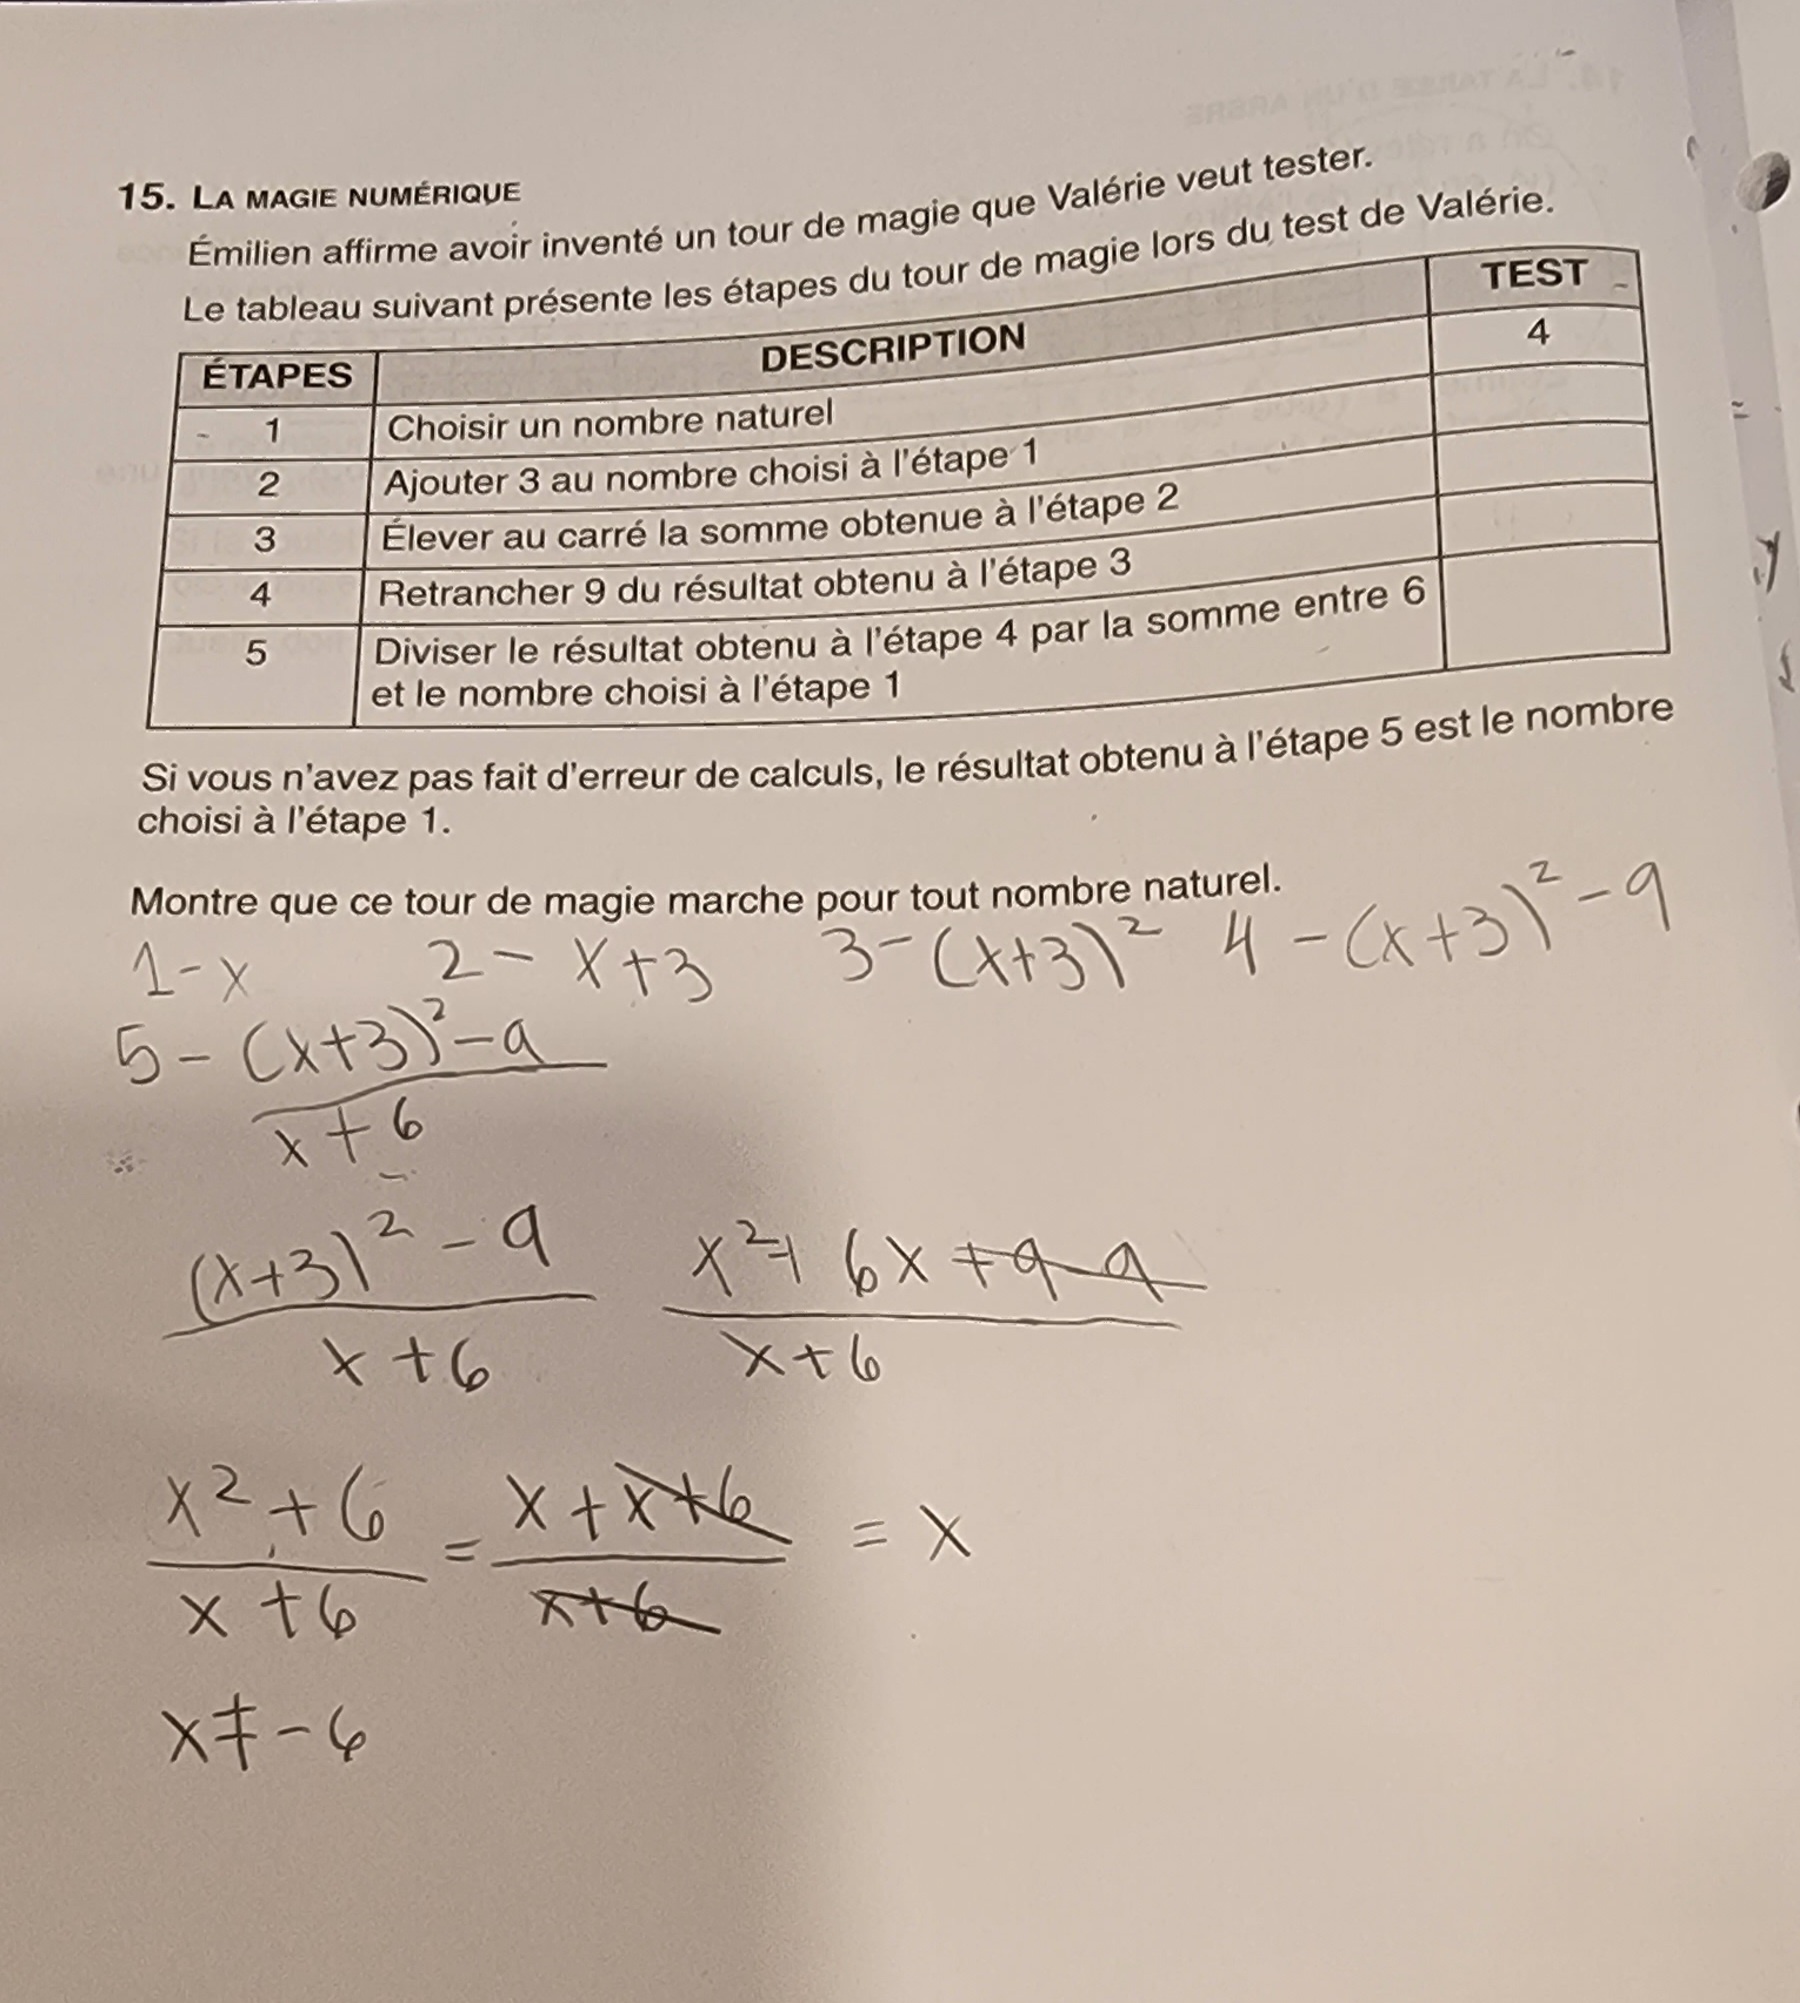 15. LA MAGIE NUMÉRIQUE
Émilien affirme avoir inventé un tour de magie que Valérie veut tester.
Le tableau suivant présente les étapes du tour de magie lors du test de Valérie.
ÉTAPES DESCRIPTION TEST
1 Choisir un nombre naturel 4
2 Ajouter 3 au nombre choisi à l'étape 1
3 Élever au carré la somme obtenue à l'étape 2
4 Retrancher 9 du résultat obtenu à l'étape 3
5 Diviser le résultat obtenu à l'étape 4 par la somme entre 6
et le nombre choisi à l'étape 1
Si vous n'avez pas fait d'erreur de calculs, le résultat obtenu à l'étape 5 est le nombre
choisi à l'étape 1.
Montre que ce tour de magie marche pour tout nombre naturel.
1-x 2- x+3 3-(x+3)² 4-(x+3)²-9
5-(x+3)²-9
x+6
(x+3)²-9 x²+6x+9-9
x+6 x+6
x²+6 = x+x+6 = x
x+6 x+6
x≠-6